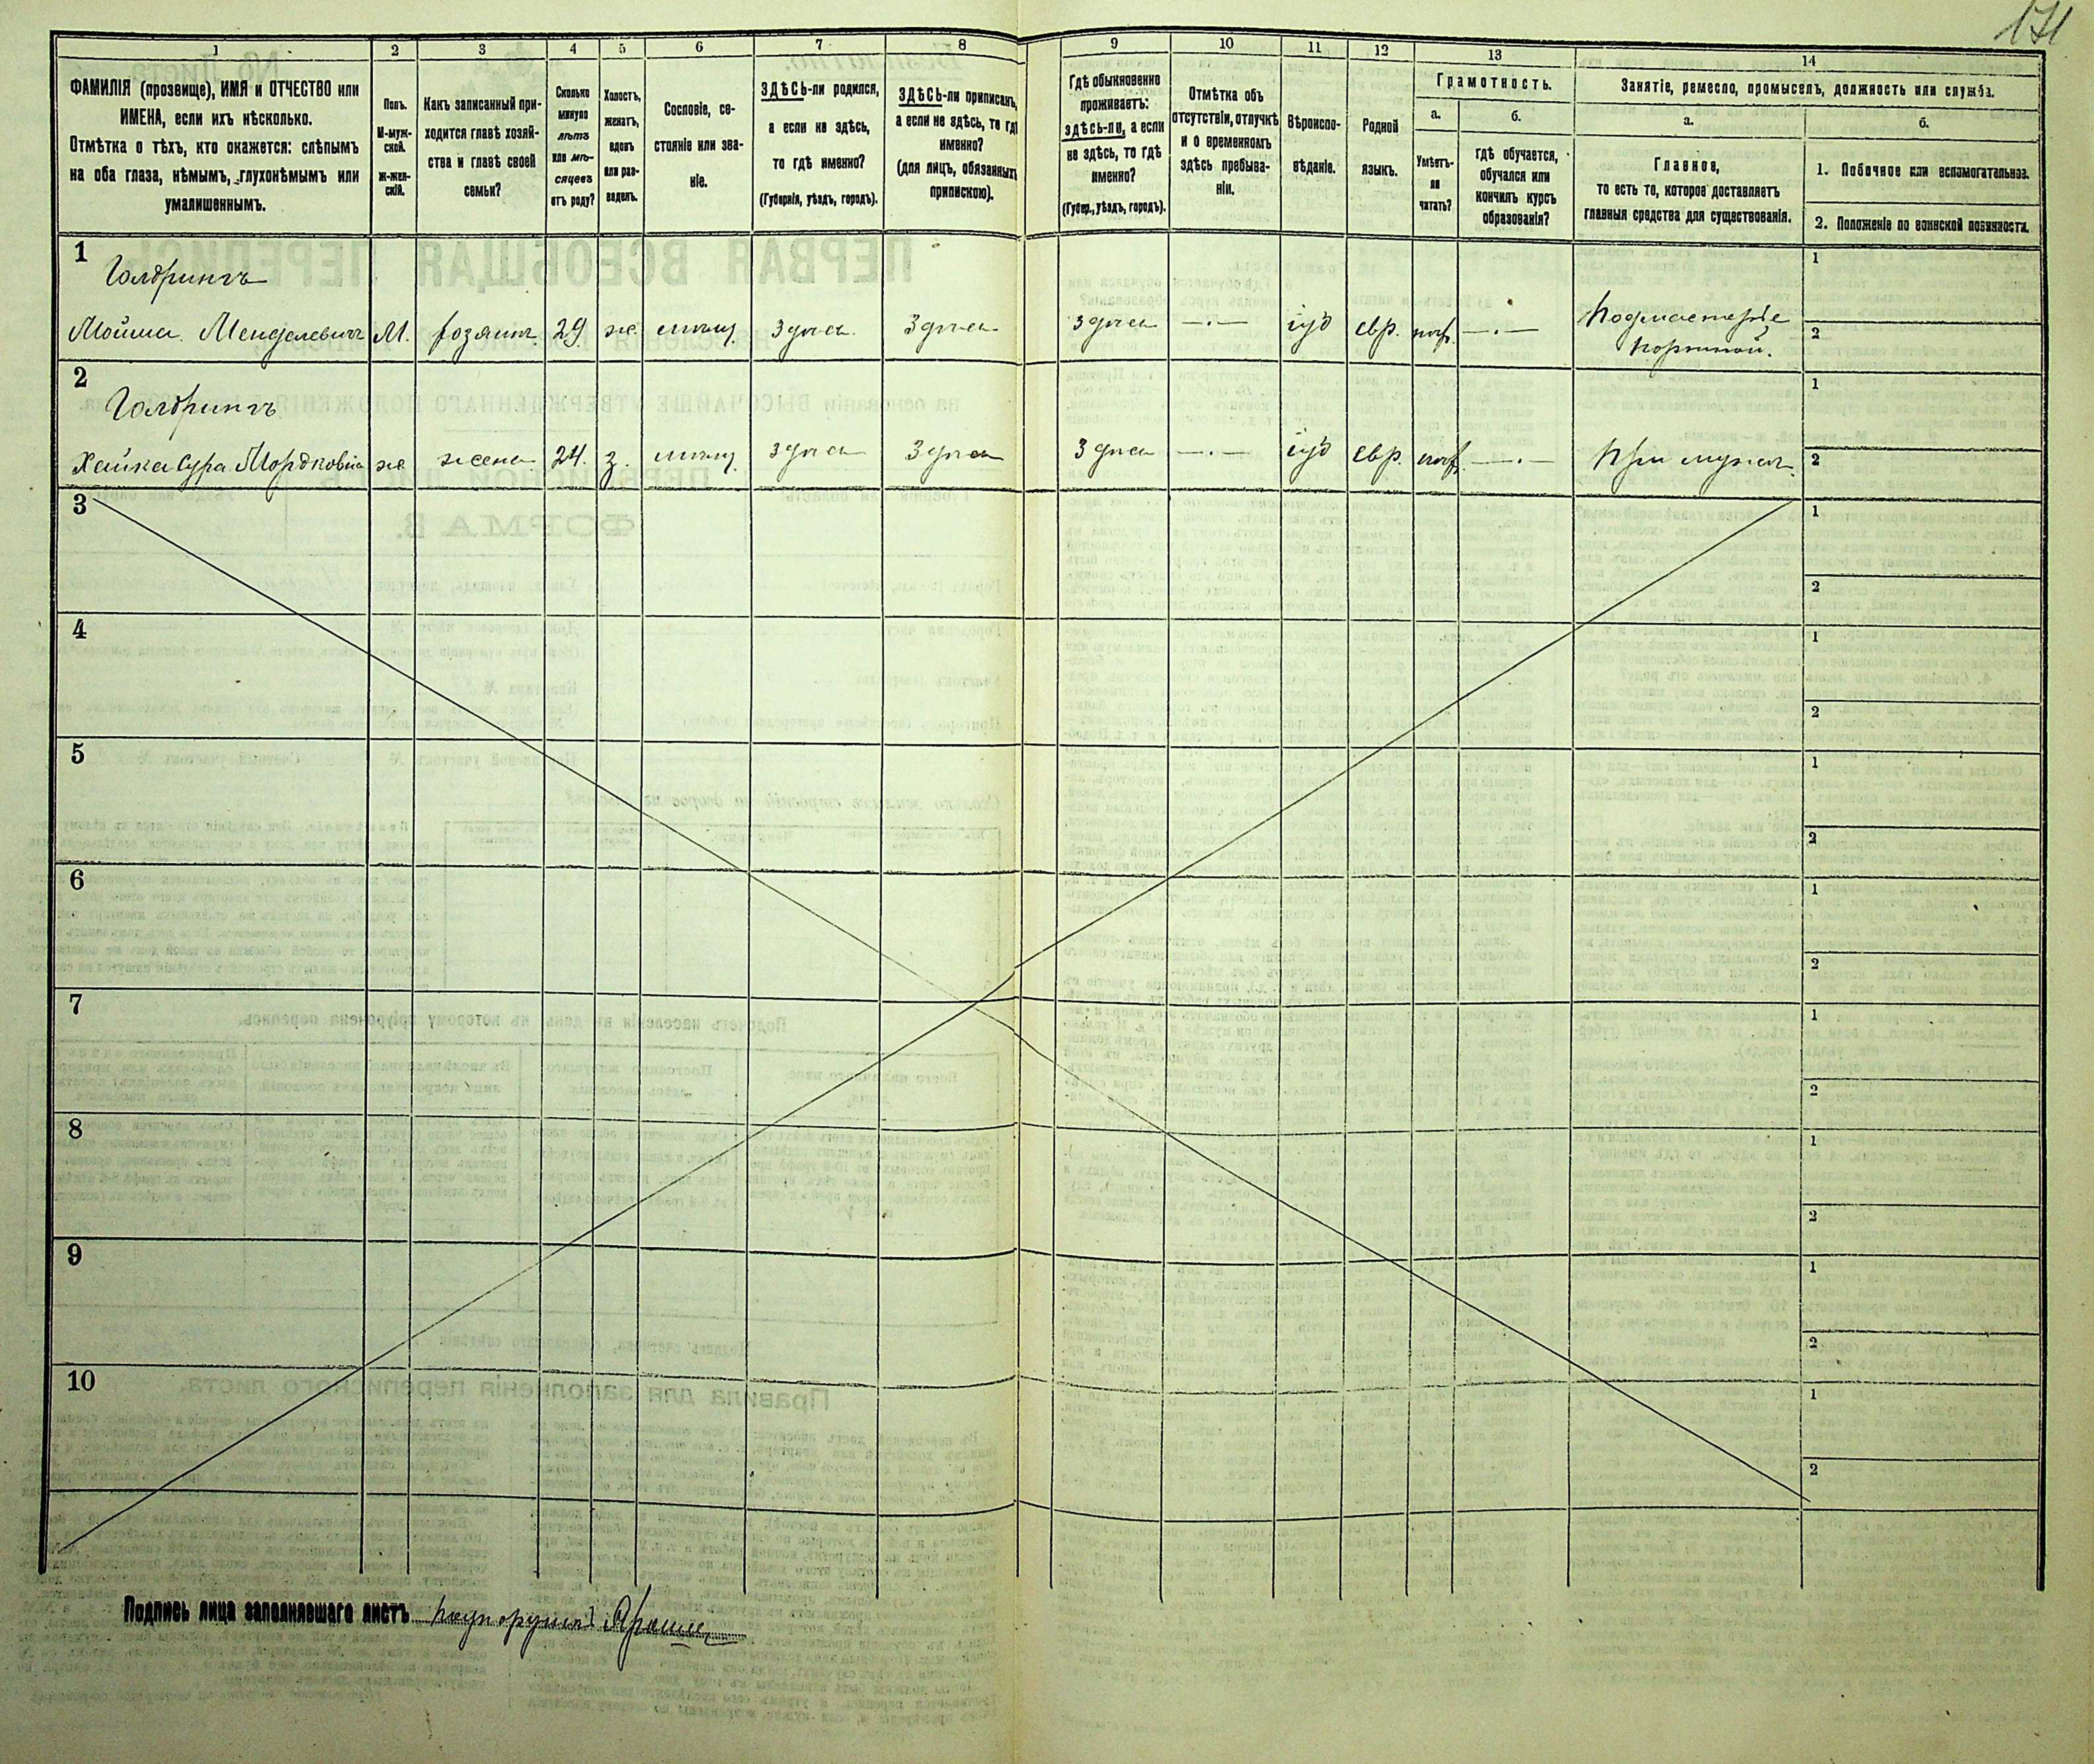 171
1 2 3 4 5 6 7 8 9 10 11 12 13 14
ФАМИЛІЯ (прозвище), ИМЯ и ОТЧЕСТВО или
ИМЕНА, если ихъ нѣсколько.
Отмѣтка о тѣхъ, кто окажется: слѣпымъ
на оба глаза, нѣмымъ, глухонѣмымъ или
умалишеннымъ.
Полъ.
М-муж-
ской.
ж-жен-
скій.
Какъ записанный при-
ходится главѣ хозяй-
ства и главѣ своей
семьи?
Сколько
минуло
лѣтъ
или мѣ-
сяцевъ
отъ роду?
Холостъ,
женатъ,
вдовъ
или раз-
веденъ.
Сословіе, со-
стояніе или зва-
ніе.
ЗДѢСЬ-ли родился,
а если не здѣсь,
то гдѣ именно?
(Губернія, уѣздъ, городъ).
ЗДѢСЬ-ли приписанъ,
а если не здѣсь, то гдѣ
именно?
(для лицъ, обязанныхъ
припискою).
Гдѣ обыкновенно
проживаетъ:
здѣсь-ли, а если
не здѣсь, то гдѣ
именно?
(Губер., уѣздъ, городъ).
Отмѣтка объ
отсутствіи, отлучкѣ
и о временномъ
здѣсь пребыва-
ніи.
Вѣроиспо-
вѣданіе.
Родной
языкъ.
Грамотность.
а.
Умѣетъ-
ли
читать?
б.
гдѣ обучается,
обучался или
кончилъ курсъ
образованія?
Занятіе, ремесло, промыселъ, должность или служба.
а.
Главное,
то есть то, которое доставляетъ
главныя средства для существованія.
б.
1. Побочное или вспомогательное.
2. Положеніе по воинской повинности.
1
Голдрингъ
Мойша Менделевичъ М. хозяинъ 29 ж. мѣщ. здѣсь здѣсь здѣсь —.— іуд евр. —.— Подмастерье
портной.
1
2
2
Голдрингъ
Хайка Сура Мордковна ж жена 24. з. мѣщ. здѣсь здѣсь здѣсь —.— іуд евр. —.— При мужѣ
1
2
3
1
2
4
1
2
5
1
2
6
1
2
7
1
2
8
1
2
9
1
2
10
1
2
Подпись лица заполнявшаго листъ